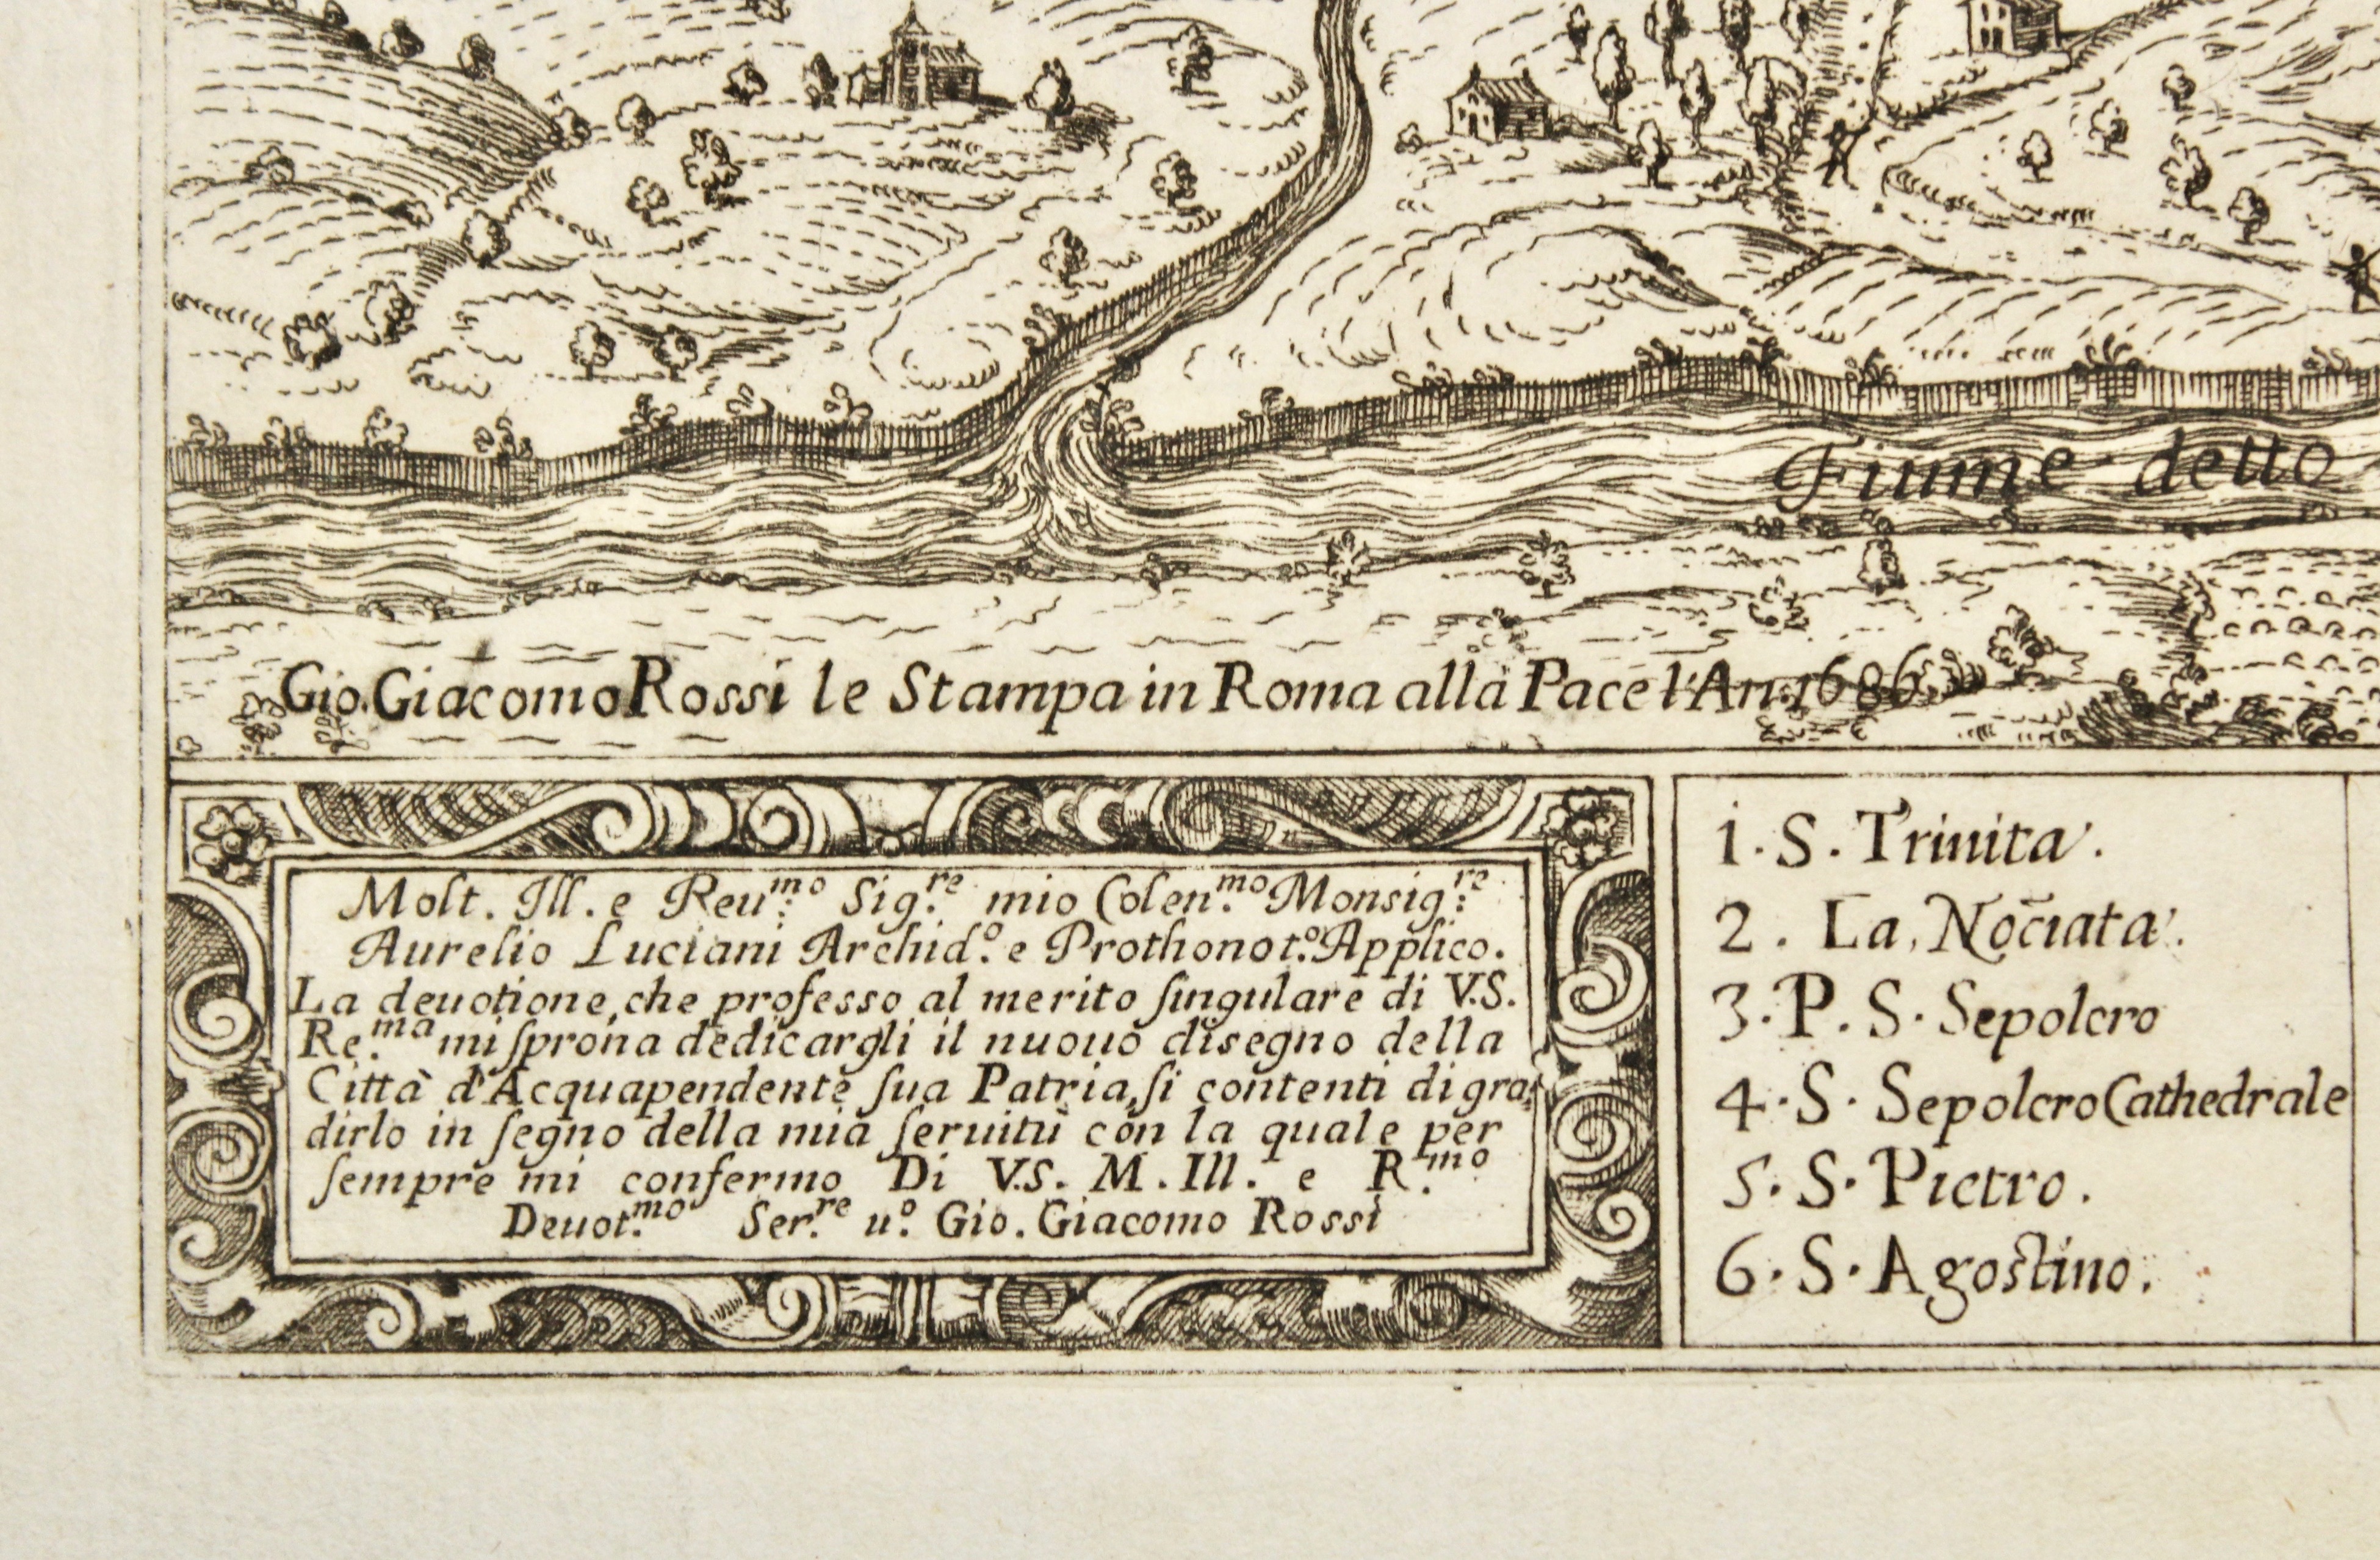 Fiume detto
Gio. Giacomo Rossi le Stampa in Roma alla Pace l'An. 1686.
Molt. Ill. e Reu.mo Sig.re mio Colen.mo Monsig.re
Aurelio Luciani Archid.º e Prothonot.º Applico.
La deuotione, che professo al merito ſingulare di V.S.
Re.ma mi ſprona dedicargli il nuouo disegno della
Città d'Acquapendente ſua Patria, ſi contenti di gra,
dirlo in ſegno della mia ſeruitù con la quale per
ſempre mi confermo Di V.S. M. Ill. e R.mo
Deuot.mo Ser.re u.º Gio. Giacomo Rossi
1. S. Trinita.
2. La Nociata.
3. P. S. Sepolcro
4. S. Sepolcro Cathedrale
5. S. Pietro.
6. S. Agostino.